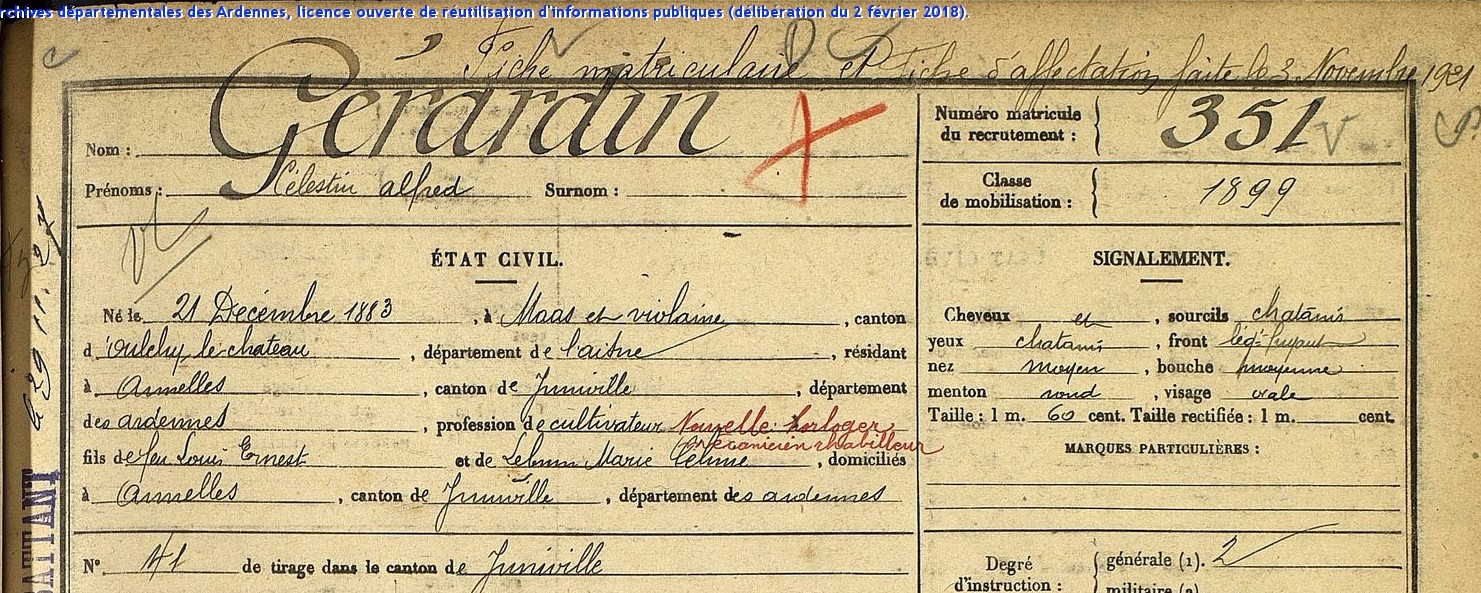 rchives départementales des Ardennes, licence ouverte de réutilisation d'informations publiques (délibération du 2 février 2018).
Fiche matriculaire et Fiche d'affectation faite le 3 Novembre 1921
Nom : Gérardin
Prénoms : Célestin alfred Surnom :
Numéro matricule du recrutement : 351
Classe de mobilisation : 1899
ÉTAT CIVIL.
Né le 21 Décembre 1883, à Maas et violaine, canton
d'oulchy le chateau, département de l'aisne, résidant
à Annelles, canton de Juniville, département
des ardennes, profession de cultivateur Nouvelle : horloger
mécanicien rhabilleur
fils de feu Louis Ernest et de Lebrun Marie Céline, domiciliés
à Annelles, canton de Juniville, département des ardennes
N° 41 de tirage dans le canton de Juniville
SIGNALEMENT.
Cheveux et, sourcils chatains
yeux chatains, front
nez moyen, bouche moyenne
menton rond, visage ovale
Taille : 1 m. 60 cent. Taille rectifiée : 1 m. cent.
MARQUES PARTICULIÈRES :
Degré d'instruction : générale (1). 2
militaire (2)